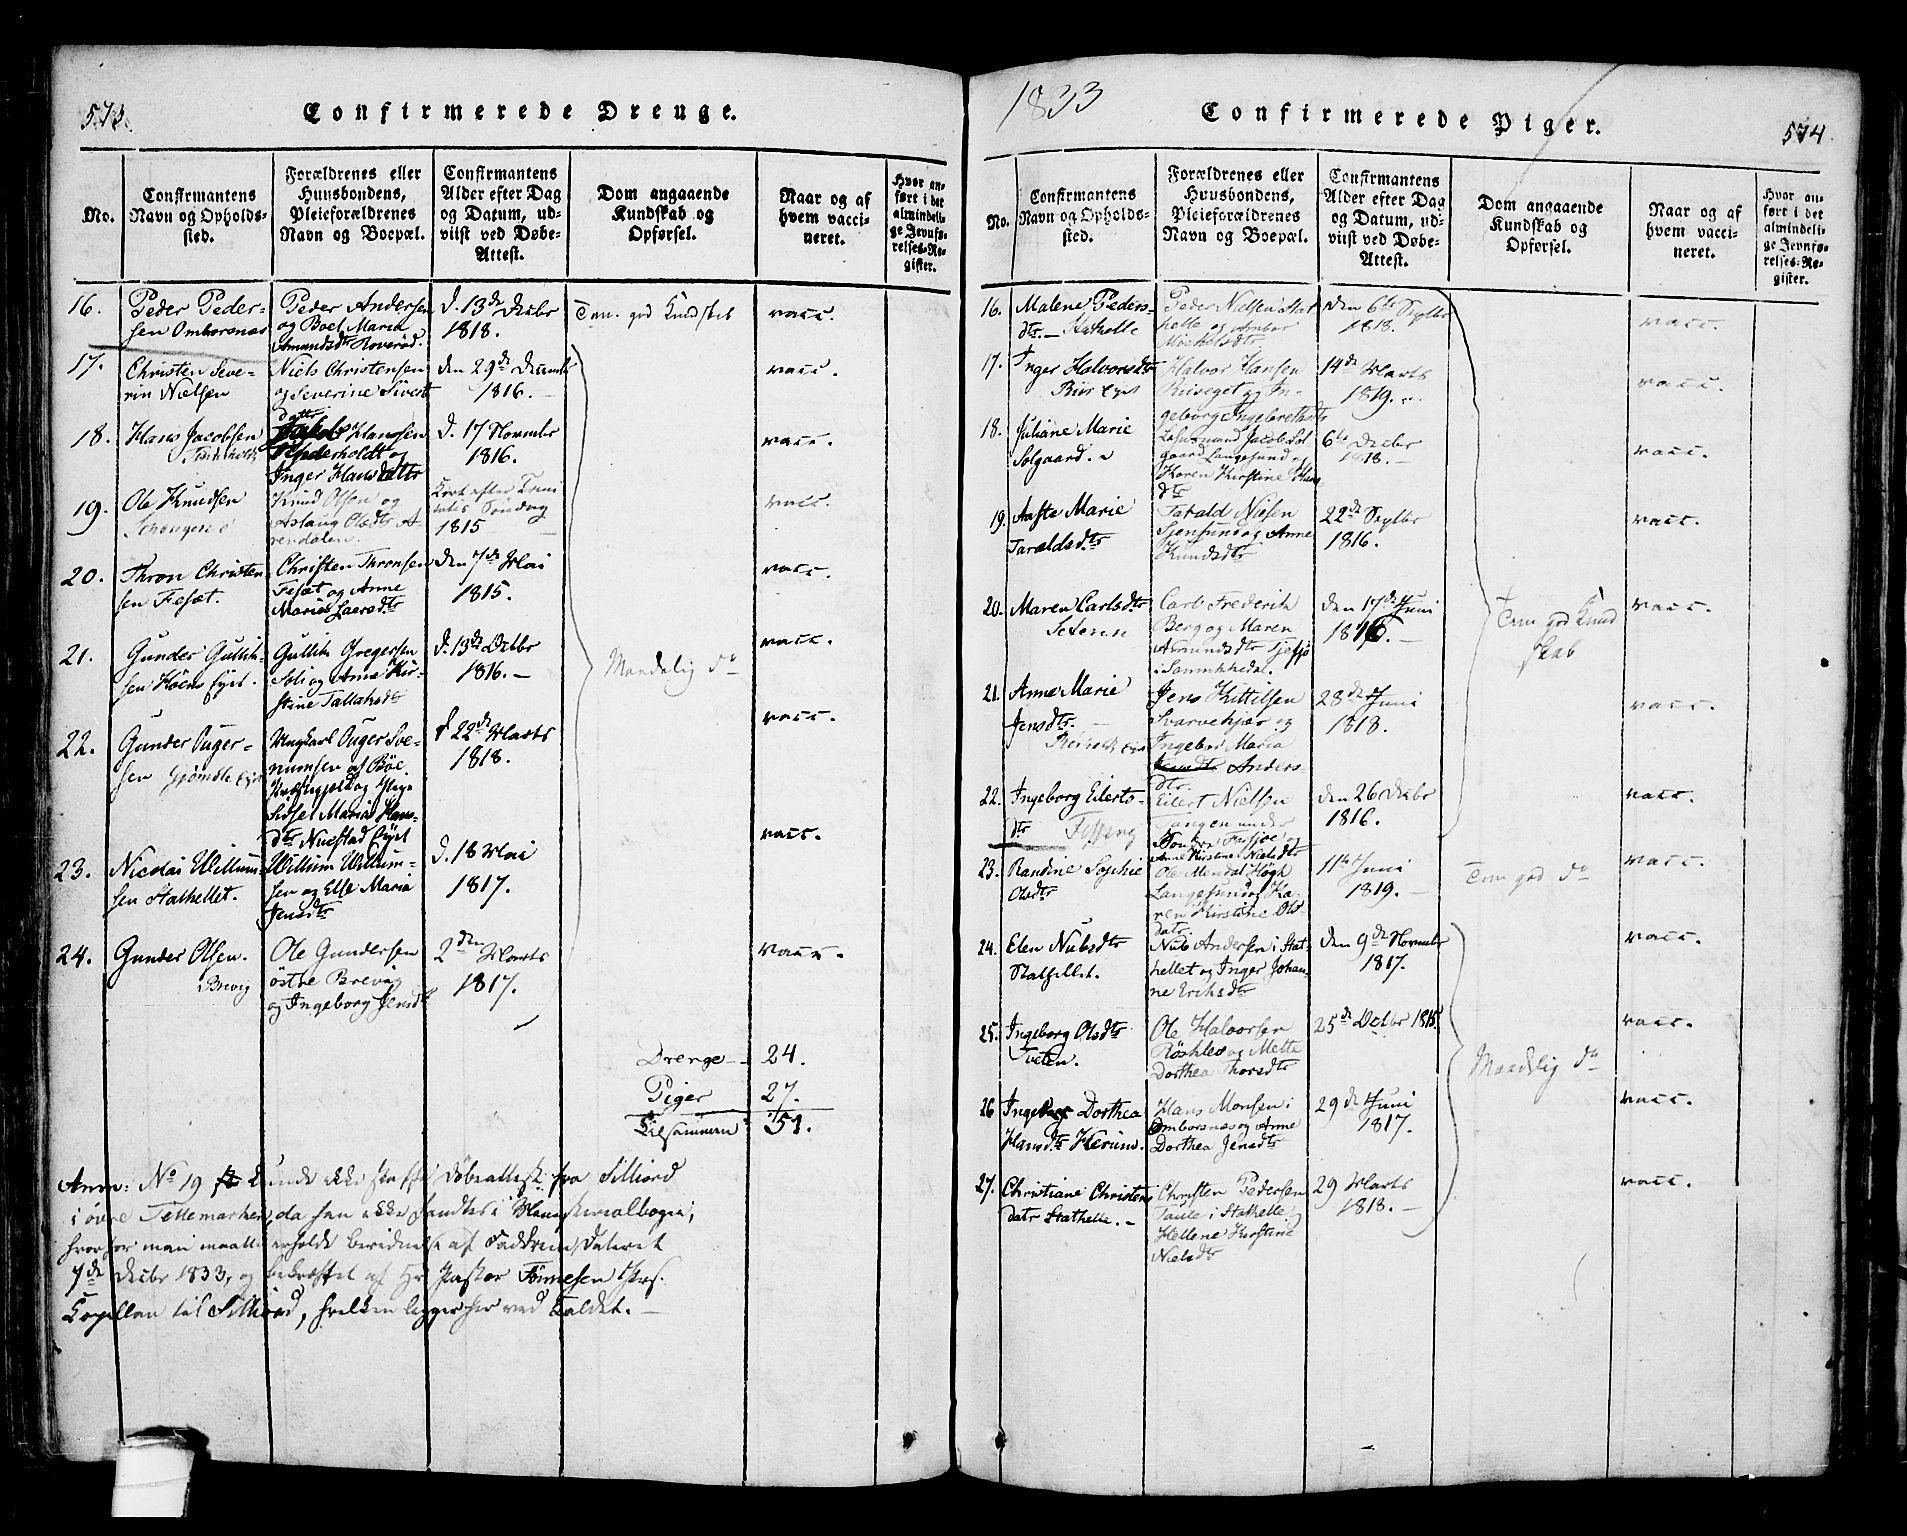 573.
Confirmerede Drenge.
No.
Confirmantens
Navn og Opholds-
sted.
Forældrenes eller
Huusbondens,
Pleieforældrenes
Navn og Boepæl.
Confirmantens
Alder efter Dag
og Datum, ud-
viist ved Døbe-
Attest.
Dom angaaende
Kundskab og
Opførsel.
Naar og af
hvem vacci-
neret.
Hvor an-
ført i det
almindeli-
ge Jevnfø-
relses-Re-
gister.
16.
Peder Peder-
sen Omborsnæs
Peder Andersen
og Boel Maria
Amundsdtr Roverød.
d. 13de Decbr
1818.
Tem. god Kundskab
vacc.
17.
Christen Seve-
rin Nielsen
Niels Christensen
og Severine Sivert
datter
den 29de Decembr
1816.
vacc.
18.
Hans Jacobsen
Jakob Hansen
og
Inger Hansdatter
d. 17 Novembr
1816.
vacc.
19.
Ole Knudsen
Knud Olsen og
Aslaug Olsdtr A-
rendalen.
Kort efter Trini
tatis Søndag
1815
vacc.
20.
Thron Christen
sen Feset.
Christen Thronsen
Feset og Anne
Maria Larsdtr
den 7de Mai
1815.
vacc.
21.
Gunder Gullik-
sen
Gullik Gregersen
og Anne Kir-
stine Tallaksdtr
d. 13de Octbr
1816.
Maadelig do
vacc.
22.
Gunder Auger-
sen
Ungkarl Auger Sve-
af Bøe
og Pige
Sidsel Maria Hans-
dtr
22de Marts
1818.
vacc.
23.
Nicolai Willum
sen Stathellet.
Willum Willum-
sen og Else Maria
Jensdtr
d. 18 Mai
1817.
vacc.
24.
Gunder Olsen.
Brevig
Ole Gundersen
östre Brevig
og Ingeborg Jensdtr
2den Marts
1817.
vacc.
Drenge - 24.
Piger 27.
Tilsammen 51.
Anm: No 19 kunde ikke Døbeattest fra Silliord
i øvre Tellemarken, da han ikke fandtes i Ministerialbogen,
hvorfor man maatte erholde af Faddrene, dateret
7de Decbr 1833, og bekræftet af Hr Pastor Tönnesen pers.
Capellan til Silliord, hvilken ligger her ved Taldet.
1833
Confirmerede Piger.
574.
No.
Confirmantens
Navn og Opholds-
sted.
Forældrenes eller
Huusbondens,
Pleieforældrenes
Navn og Boepæl.
Confirmantens
Alder efter Dag
og Datum, ud-
viist ved Døbe-
Attest.
Dom angaaende
Kundskab og
Opførsel.
Naar og af
hvem vacci-
neret.
Hvor an-
ført i det
almindeli-
ge Jevnfø-
relses-Re-
gister.
16.
Malene Peders-
dtr. - Stathelle
Peder Nielsen Stat
helle og
Michelsdtr
den 6te Septbr
1818.
vacc.
17.
Inger Halvorsdtr
Halvor Hansen
og In-
geborg Ingebretsdtr
14de Marts
1819.
vacc.
18.
Juliane Marie
Solgaard.
Jacob Sol
gaard Langesund og
Karen Kirstine
dtr
6te Decbr
1818.
vacc.
19.
Aaste Marie
Taraldsdtr
Tarald Nielsen
og Anne
Knudsdtr
22de Septbr
1816.
vacc.
20.
Maren Carlsdtr
Carl Frederik
Berg og Maren
Asmundsdtr
i Sannikedal.
den 17de Juni
1816.
Tem god Kund
skab
vacc.
21.
Anne Marie
Jensdtr.
Jens Kittilsen
Svarvekjær og
Ingebor Maria
Anders-
dtr.
28de Juni
1818.
vacc.
22.
Ingeborg Eilerts-
dtr
Eilert Nielsen
Tangen under
og
Anne Kirstine Nielsdtr
den 26 Decbr
1816.
vacc.
23.
Randine Sophie
Olsdtr
Ole Høgh
Langesund og Ka-
ren Kirstine Ols-
datr.
11te Juni
1819.
Tem god do
vacc.
24.
Elen Nubsdtr
Stathellet.
Nub Andersen i Stat-
hellet og Inger Johan-
ne Eriksdtr
den 9de Novembr
1817.
vacc.
25.
Ingeborg Olsdtr
Tveten.
Ole Halvorsen
og Mette
Dorthea Thorsdtr
25de Octbr 1815.
Maadelig do
vacc.
26
Ingeborg Dorthea
Hansdtr Herum.
Hans Monsen i
Omborsnæs og Anne
Dorthea Jensdtr
29de Juni
1817.
vacc.
27.
Christiane Christens
datr Stathelle. -
Christen Pedersen
i Stathelle og
Hellene Kirstine
Nielsdtr
29 Marts
1818.
vacc.